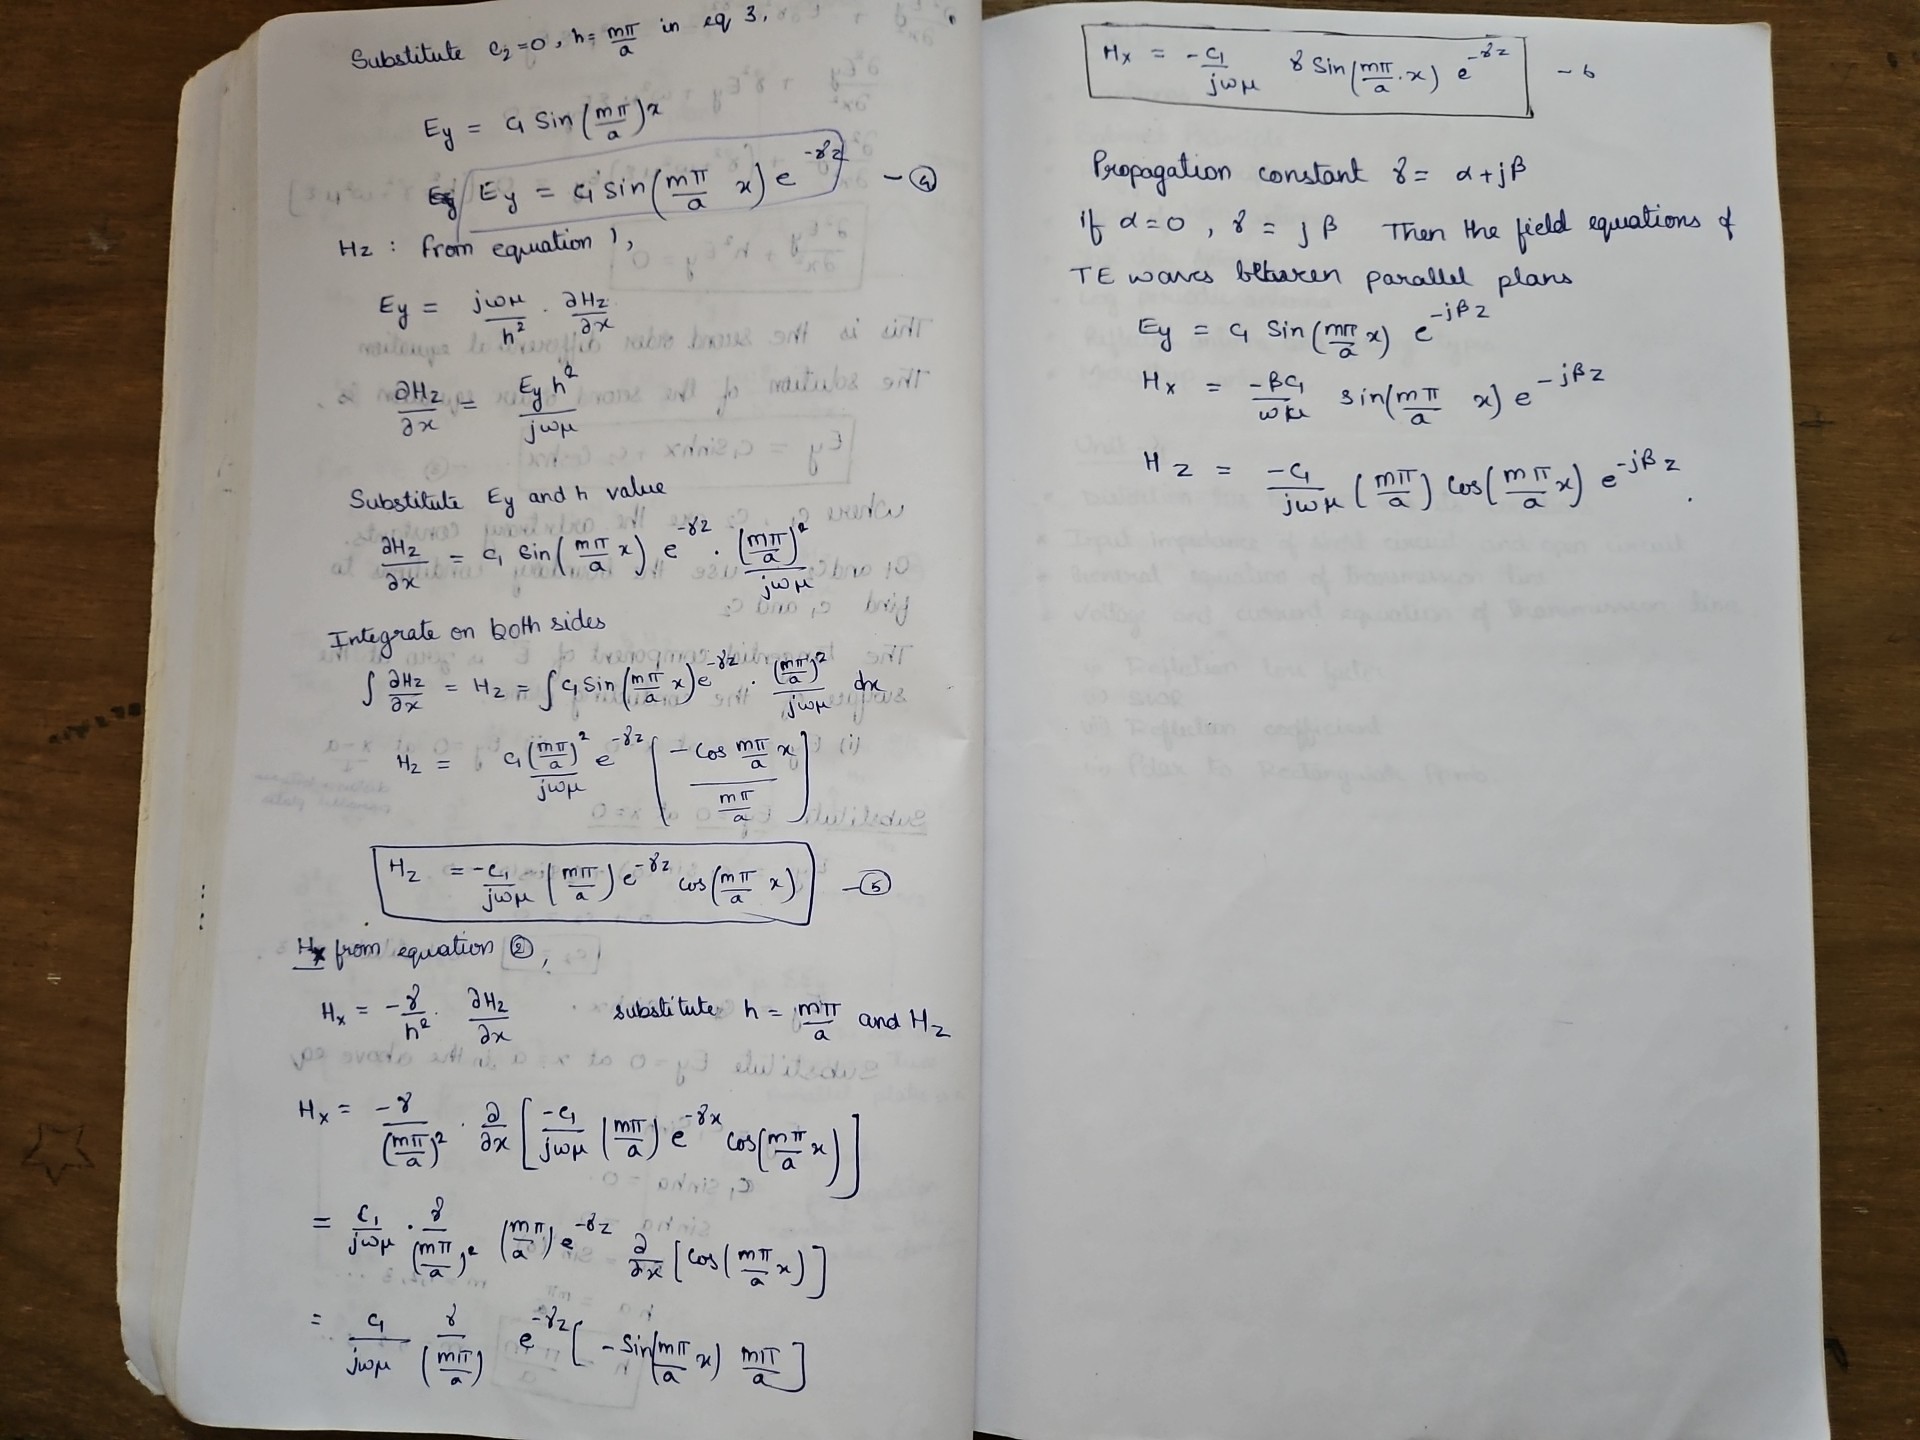 Substitute C₂ = 0, h = mπ/a in eq 3.
Ey = C₁ Sin (mπ/a) x
Ey = C₁ Sin (mπ/a x) e^-γz - ④
Hz : from equation 1,
Ey = jωμ/h² . ∂Hz/∂x
∂Hz/∂x = Ey h²/jωμ
Substitute Ey and h value
∂Hz/∂x = C₁ Sin (mπ/a x) e^-γz . (mπ/a)²/jωμ
Integrate on both sides
∫ ∂Hz/∂x = Hz = ∫ C₁ Sin (mπ/a x) e^-γz . (mπ/a)²/jωμ dx
Hz = C₁ (mπ/a)²/jωμ e^-γz [ -Cos mπ/a x / mπ/a ]
Hz = -C₁/jωμ (mπ/a) e^-γz cos (mπ/a x) - ⑤
Hx from equation ②,
Hx = -γ/h² . ∂Hz/∂x substitute h = mπ/a and Hz
Hx = -γ/(mπ/a)² . ∂/∂x [ -C₁/jωμ (mπ/a) e^-γx Cos(mπ/a x) ]
= C₁/jωμ . γ/(mπ/a)² (mπ/a) e^-γz ∂/∂x [Cos (mπ/a x)]
= C₁/jωμ γ/(mπ/a) e^-γz [ - Sin(mπ/a x) mπ/a ]
Hx = -C₁/jωμ γ Sin (mπ/a . x) e^-γz - 6
Propagation constant γ = α + jβ
if α = 0 , γ = jβ Then the field equations of
TE waves between parallel plans
Ey = C₁ Sin (mπ/a x) e^-jβz
Hx = -βC₁/ωμ sin(mπ/a x) e^-jβz
Hz = -C₁/jωμ (mπ/a) Cos (mπ/a x) e^-jβz .